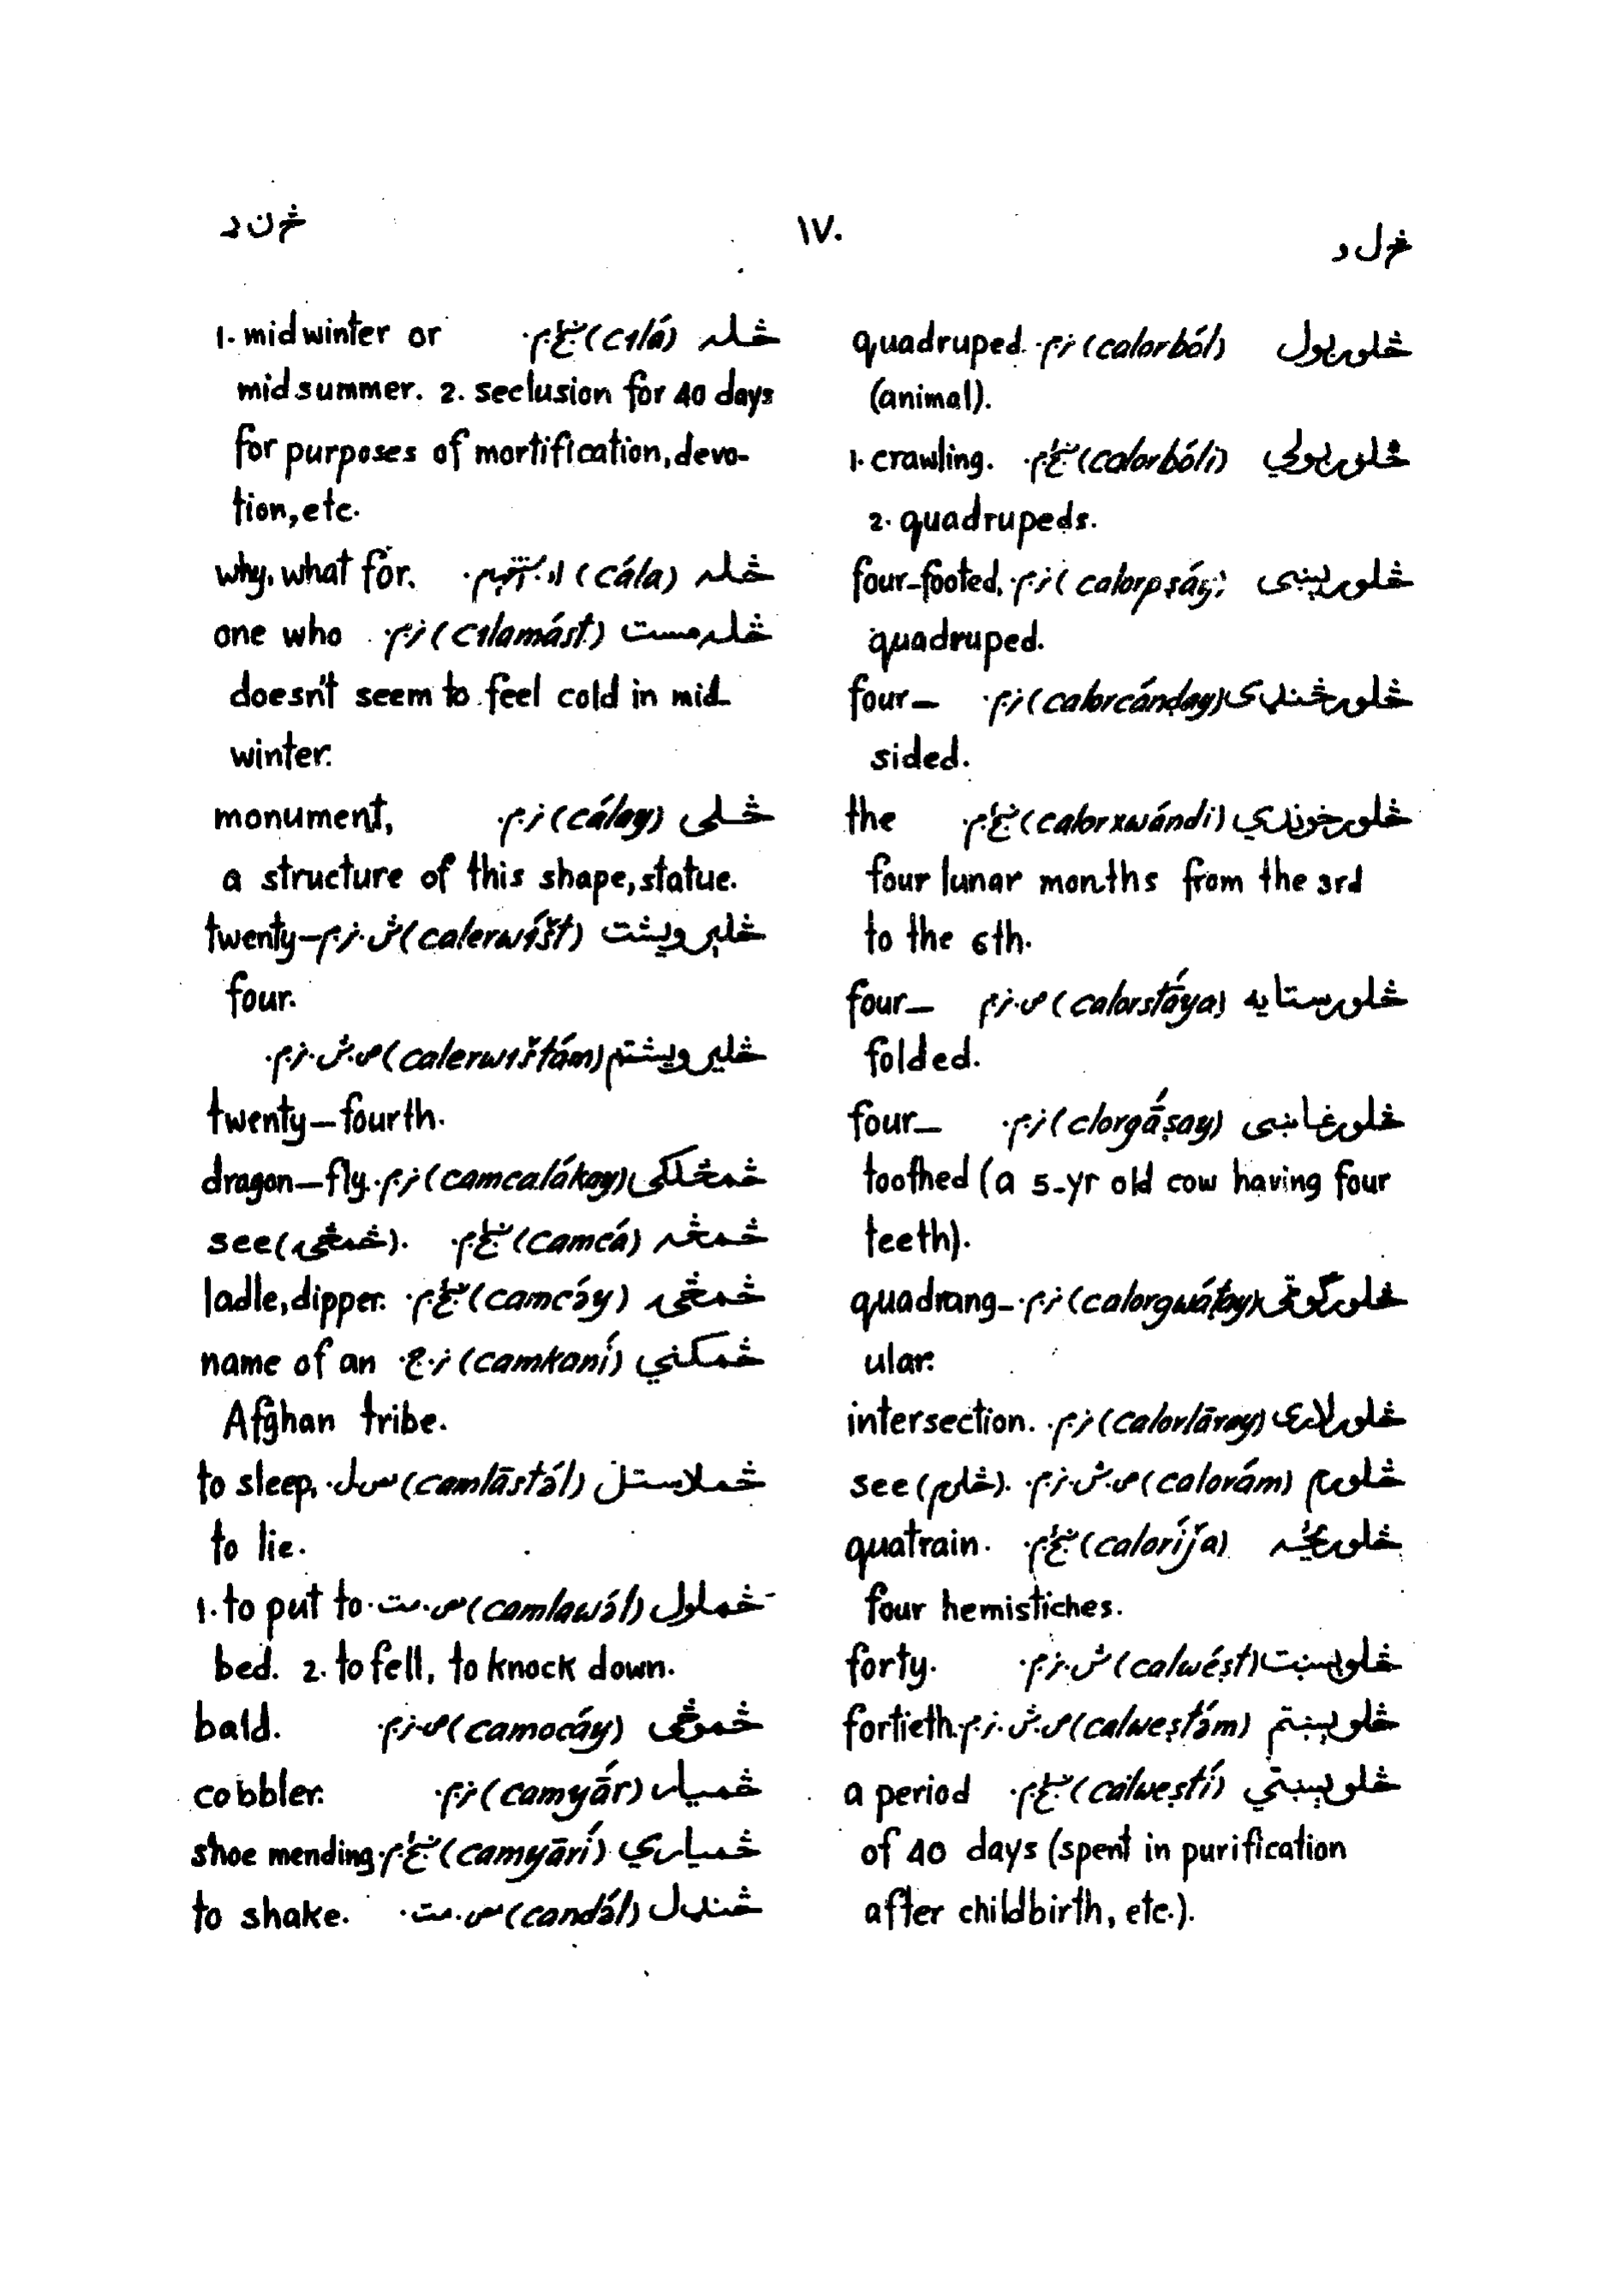 څ ل و
١٧٠
څ ن د
څلوربول (calorból) نر.م. quadruped
(animal).
څلوربولي (calorbóli) ښځ.م. 1. crawling.
2. quadrupeds.
څلورپښی (calorpṣáy) نر.م. four-footed,
quadruped.
څلورڅنډی (calorcánḍay) نر.م. four-
sided.
څلورخوندي (calorxwándi) ښځ.م. the
four lunar months from the 3rd
to the 6th.
څلورستایه (calorstā́ya) ص.نر.م four-
folded.
څلورغاښی (clorgā́ṣay) نر.م. four-
toothed (a 5-yr old cow having four
teeth).
څلورګوټی (calorgwáṭay) نر.م. quadrang-
ular.
څلورلاری (calorlāray) نر.م. intersection.
څلورم (calorám) ص.ش.نر.م. see (څلرم).
څلوریځه (caloríǰa) ښځ.م. quatrain.
four hemistiches.
څلوېښت (calwéṣt) ش.نر.م. forty.
څلوېښتم (calweṣtə́m) ص.ش.نر.م. fortieth.
څلوېښتي (calweṣtí) ښځ.م. a period
of 40 days (spent in purification
after childbirth, etc.).
څله (cılá) ښځ.م. 1. midwinter or
midsummer. 2. seclusion for 40 days
for purposes of mortification, devo-
tion, etc.
څله (cála) why, what for.
څله مست (cılamást) نر.م. one who
doesn't seem to feel cold in mid-
winter.
څلی (cálay) نر.م. monument,
a structure of this shape, statue.
څلېرویشت (calerwíšt) ش.نر.م. twenty-
four.
څلېرویشتم (calerwıštám) ص.ش.نر.م.
twenty-fourth.
څمڅلکی (camcalákay) نر.م. dragon-fly.
څمڅه (camcá) ښځ.م. see (څمڅۍ).
څمڅۍ (camcə́y) ښځ.م. ladle, dipper.
څمکني (camkaní) نر.ج. name of an
Afghan tribe.
څملاستل (camlāstə́l) مص.ل. to sleep,
to lie.
څملول (camlawə́l) مص.مت. 1. to put to
bed. 2. to fell, to knock down.
څموڅی (camocáy) ص.نر.م. bald.
څمیار (camyā́r) نر.م. cobbler.
څمیاري (camyārí) ښځ.م. shoe mending
څنډل (candə́l) مص.مت. to shake.